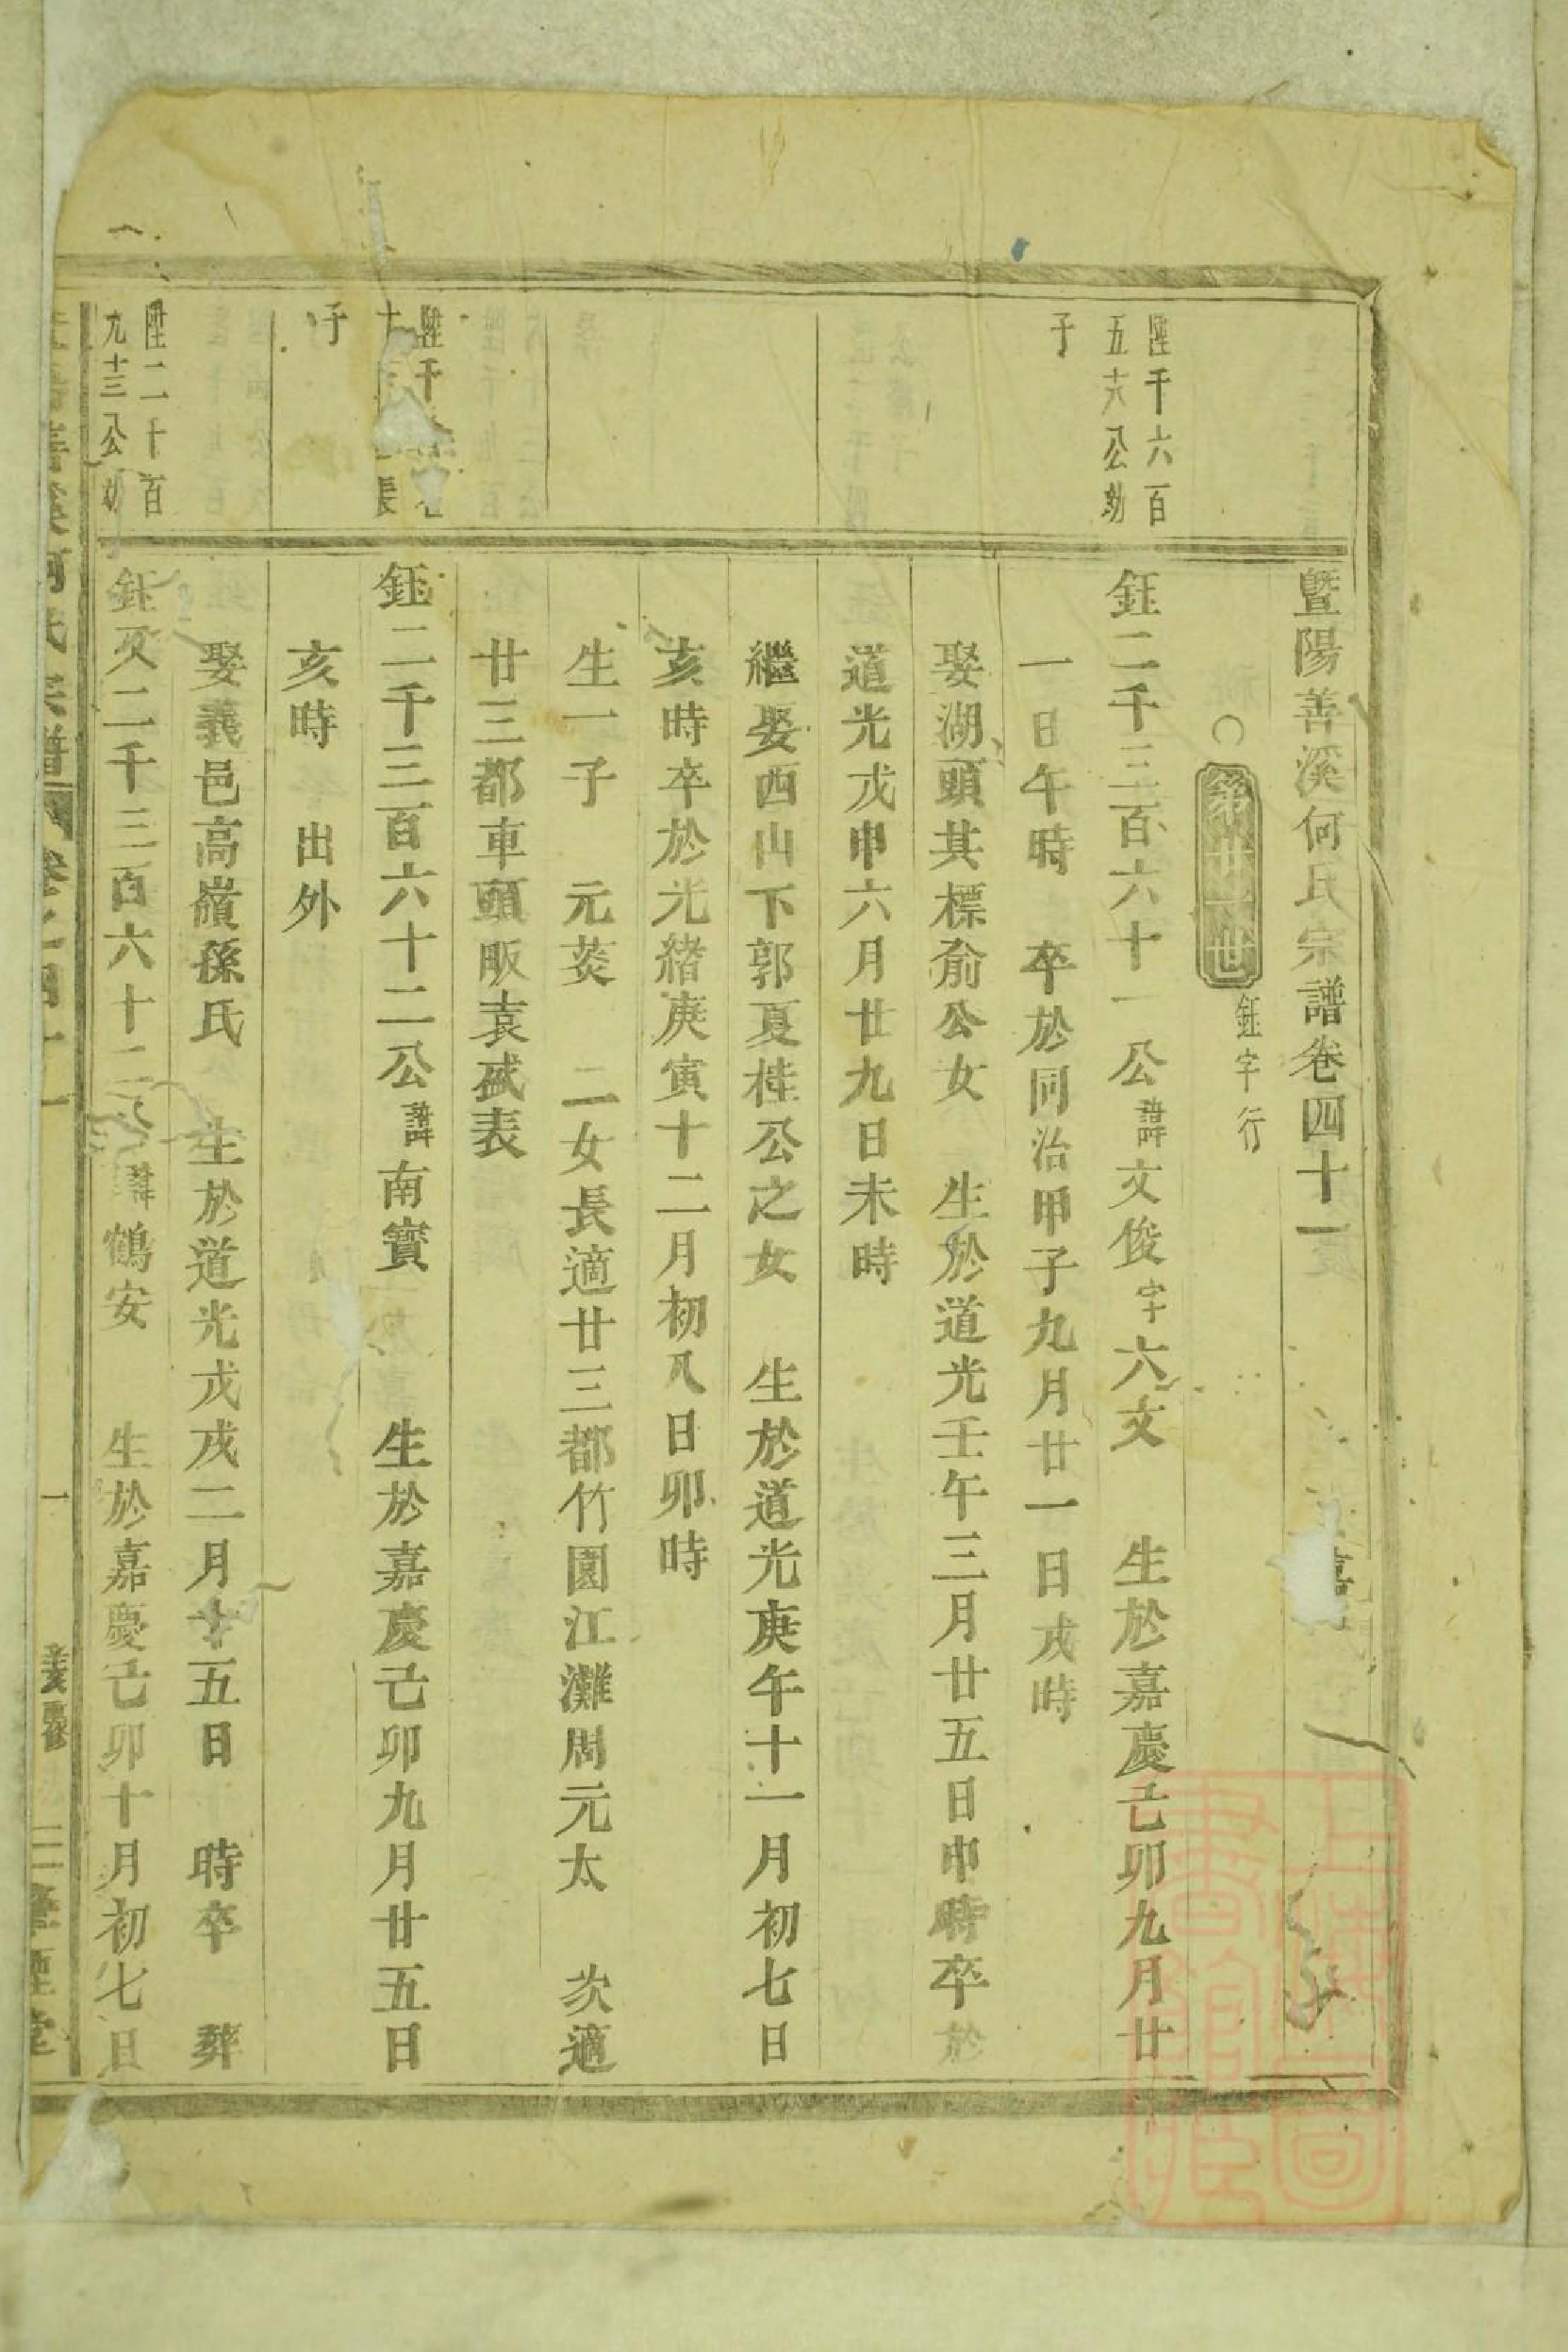 暨陽善溪何氏宗譜卷四十一
第廿一世
鈺字行
陞千六百
五六公勃
子
鈺二千三百六十一公諱文俊字六文 生於嘉慶己卯九月廿
一日午時 卒於同治甲子九月廿一日戌時
娶湖頭其標俞公女 生於道光壬午三月廿五日申時卒於
道光戊申六月廿九日未時
繼娶西山下郭夏桂公之女 生於道光庚午十一月初七日
亥時卒於光緒庚寅十二月初八日卯時
生一子 元葵 二女長適廿三都竹園江灘周元太 次適
廿三都車頭畈袁盛表
陞千
子
鈺二千三百六十二公諱南寶 生於嘉慶己卯九月廿五日
亥時 出外
娶義邑高嶺孫氏 生於道光戊戌二月十五日 時卒 葬
陞二千百
九十三公勃
鈺又二千三百六十二公諱鶴安 生於嘉慶己卯十月初七日
善溪何氏宗譜 卷之四十一 一 義